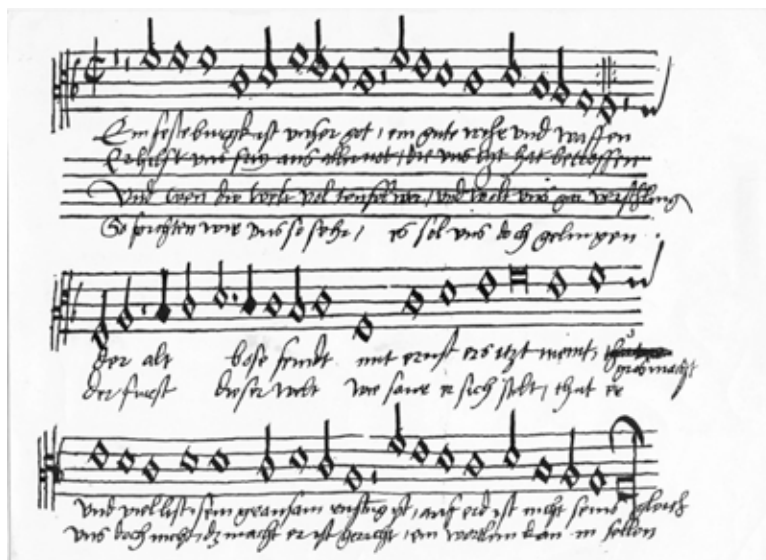 Ein feste burgk ist unser got, ein gute wehr und waffen
Er hilft uns frey aus aller not, die uns itzt hat betroffen
Und wen die welt vol teuffel wer, und wolt uns gar verschling
So forchten wir uns so sehr, es sol uns doch gelingen
der alt böse feindt mit ernst ers itzt meint,
gros macht
der furst dieser welt wie saur er sich stelt, that er
und viel list, sein grausam rustug ist, auf erd ist nicht seins gleich
uns doch nicht, dz macht er ist gericht, ein wortlin kan in fellen